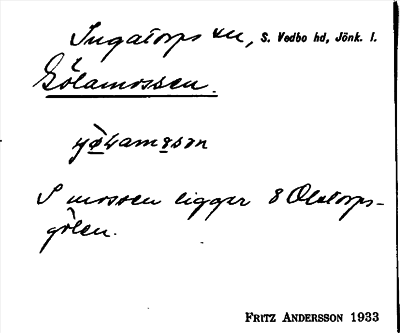 Ingatorps sn, S. Vedbo hd, Jönk. l.
Gölamossen.
yø̀lamɔsən
I mossen ligger Olstorps-
gölen.
FRITZ ANDERSSON 1933